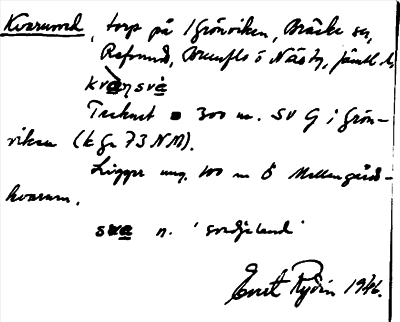 Kvarnsved, torp på Grönviken, Bräcke sn,
Refsund, Brunflo o Näs tg, Jämtl l.
kvàɳsvè
Tecknet ▪ 300 m. SV G i Grön-
viken (k gr 73 NM).
Ligger ung. 100 m Ö Mellangårds-
kvarnen.
sva n. 'svedjeland'
Evert Rydin 1946.